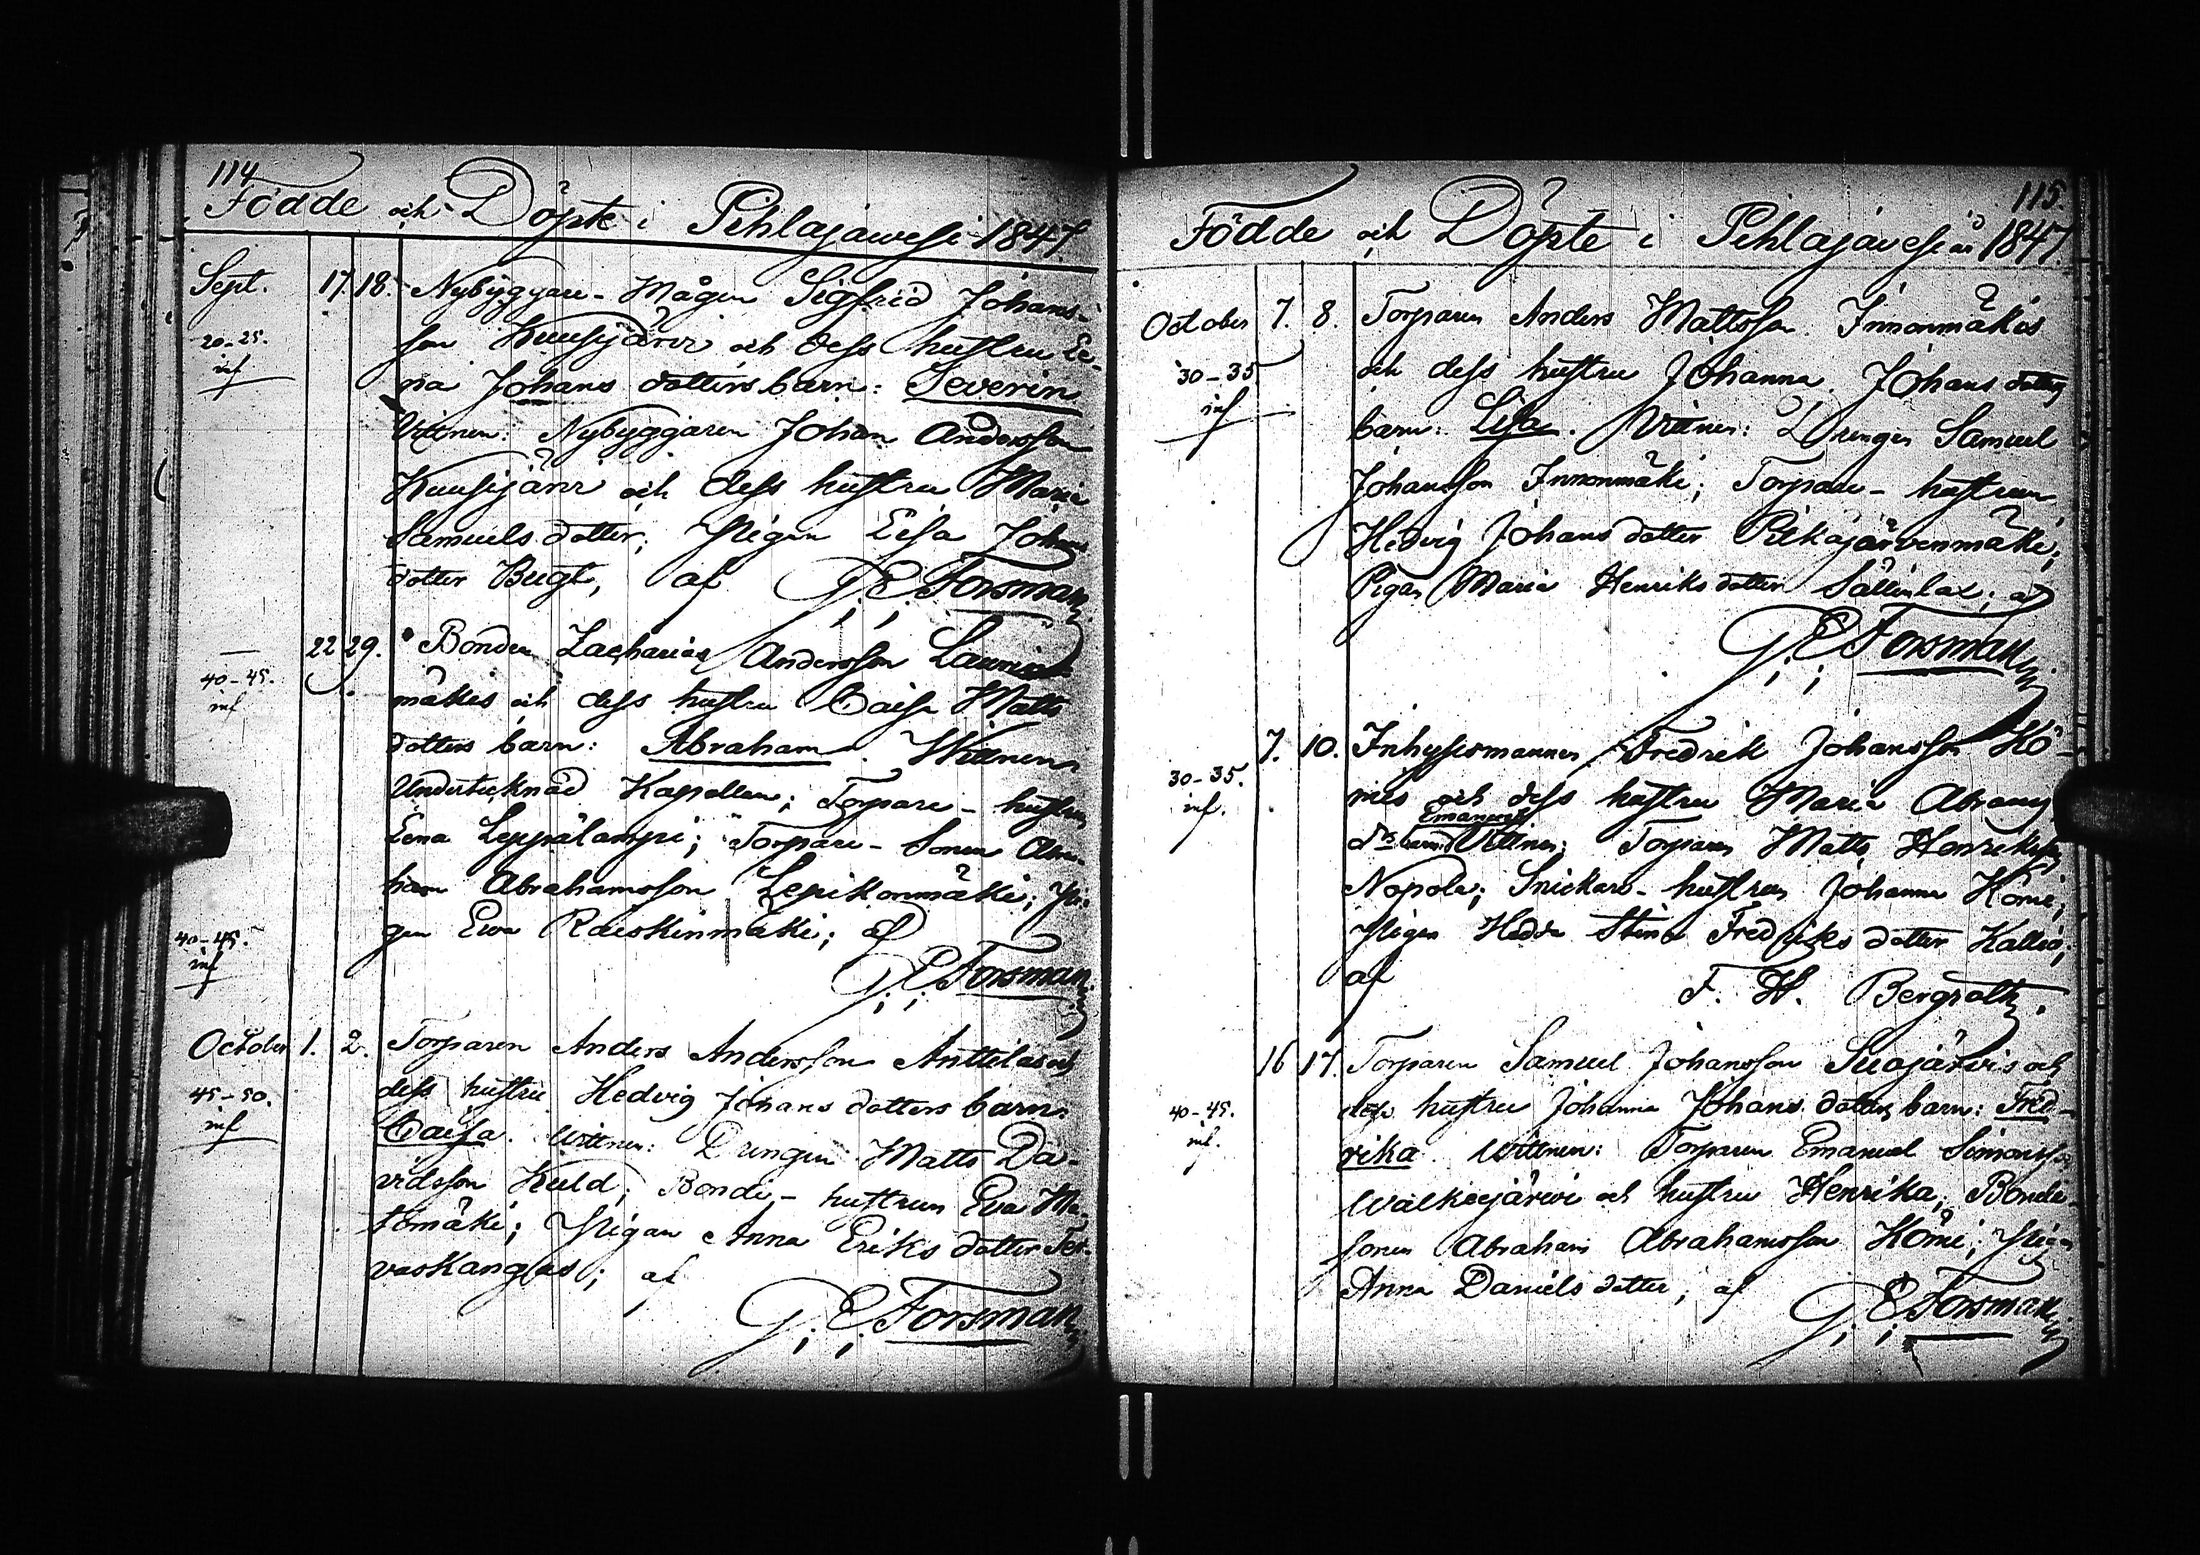 114
Födde och Döpte i Pihlajawesi 1847.
Sept. 17. 18. Nybyggare-Mågen Sigfrid Johans-
20-25. son Kuusijärvi och dess hustru Le-
inf na Johans dotters barn: Severin
Vittnen: Nybyggaren Johan Andersson
Kuusijärvi och dess hustru Maria
Samuels dotter; Pigan Lisa Johans
dotter af G. E. Forsman
22 29. Bonden Zacharias Andersson
40-45. mäkis och dess hustru Caisa Matts
inf dotters barn: Abraham. Wittnen
Undertecknad Kapellan; Torpare-hustrun
Lena Leppälampi; Torpare-Sonen Abra-
ham Abrahamsson Lepikonmäki; Pi-
40-45. gan Ewa Raiskinmäki; af
inf G. E. Forsman
October 1. 2. Torparen Anders Andersson Anttilas och
45-50. dess hustru Hedvig Johans dotters barn
inf Caisa. Wittnen: Drengen Matts Da-
vidsson Kuld; Bonde-hustrun Eva Ma-
tomäki; Pigan Anna Eriks dotter Ter-
vaskangas; af
G. E. Forsman
115.
Födde och Döpte i Pihlajavesi år 1847.
October 7. 8. Torparen Anders Mattsson Innonmäkis
30-35 och dess hustru Johanna Johans dotters
inf barn: Lisa. Vittnen: Drengen Samuel
Johansson Innonmäki; Torpare-hustrun
Hedvig Johans dotter Pitkäjärvenmäki;
Pigan Maria Henriks dotter Sällinlax; af
G. E. Forsman
7. 10. Inhysesmannen Fredrik Johansson Kö-
30-35. nies och dess hustru Maria Abrams
inf. Emanuel
Drs barn Vittnen: Torparen Matts Henriksson
Nopola; Snickare-hustrun Johanna Köni;
Pigan Hedda Stina Fredriks dotter Kallio;
af F. W. Bergroth.
16 17. Torparen Samuel Johansson Suojärvis och
40-45. dess hustru Johanna Johans dotters barn: Fred-
inf. rika. Wittnen: Torparen Emanuel Simonsson
Walkeejärvi och hustru Henrika; Bonde-
sonen Abraham Abrahamsson Köni; Pigan
Anna Daniels dotter; af
G. E. Forsman